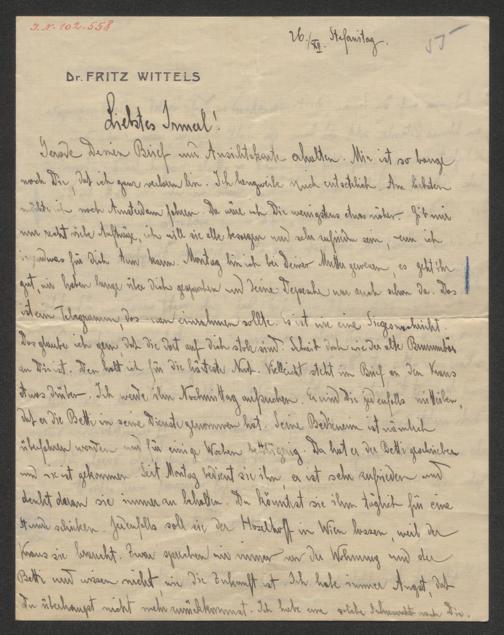 I.N. 102.558
26./XII. Stefanitag.
55
Dr. FRITZ WITTELS
Liebstes Irmerl!
Gerade Deinen Brief und Ansichtskarte erhalten. Mir ist so bange
nach Dir, daß ich ganz verloren bin. Ich langweile mich entsetzlich. Am liebsten
möchte ich nach Amsterdam fahren. Da wäre ich Dir wenigstens etwas näher. Gib mir
nur recht viele Aufträge, ich will sie alle besorgen und sehr zufrieden sein, wenn ich
irgendwas für dich tun kann. Montag bin ich bei Deiner Mutter gewesen, es geht ihr
gut, wir haben lange über dich gesprochen und deine Depesche war auch schon da. Das
ist ein Telegramm, das man einrahmen sollte. Es ist wie eine Siegesnachricht.
Das glaube ich gern, daß die dort auf dich stolz sind. Schreib doch wie der alte
zu Dir ist. Den halt ich für die härteste Nuß. Vielleicht steht im Brief an den Kraus
etwas drüber. Ich werde ihn Nachmittag aufsuchen. Er wird Dir jedenfalls mitteilen,
daß er die Betti in seine Dienste genommen hat. Seine Bedienerin ist nämlich
überfahren worden und für einige Wochen Da hat er der Betti geschrieben
und sie ist gekommen. Seit Montag bedient sie ihn, er ist sehr zufrieden und
denkt daran sie immer zu behalten. Du könntest sie ihm täglich für eine
Stunde schicken. Jedenfalls soll sie der in Wien lassen, weil der
Kraus sie braucht. Zwar sprechen wir immer von der Wohnung und der
Betti und wissen nicht wie die Zukunft ist. Ich habe immer Angst, daß
Du überhaupt nicht mehr zurückkommst. Ich habe eine solche Sehnsucht nach Dir.